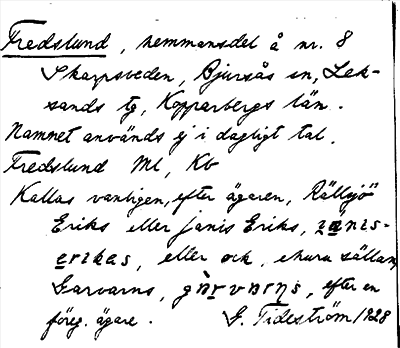 Fredslund, hemmansdel å nr. 8
Skarpsveden, Bjursås sn, Lek-
sands tg, Kopparbergs län.
Namnet används ej i dagligt tal.
Fredslund Ml, Kb
Kallas vanligen, efter ägaren, Rällsjö
Eriks eller Janis Eriks,
erikas, eller ock, ehuru sällan,
Garvarns, efter en
föreg. ägare. G. Tideström 1928